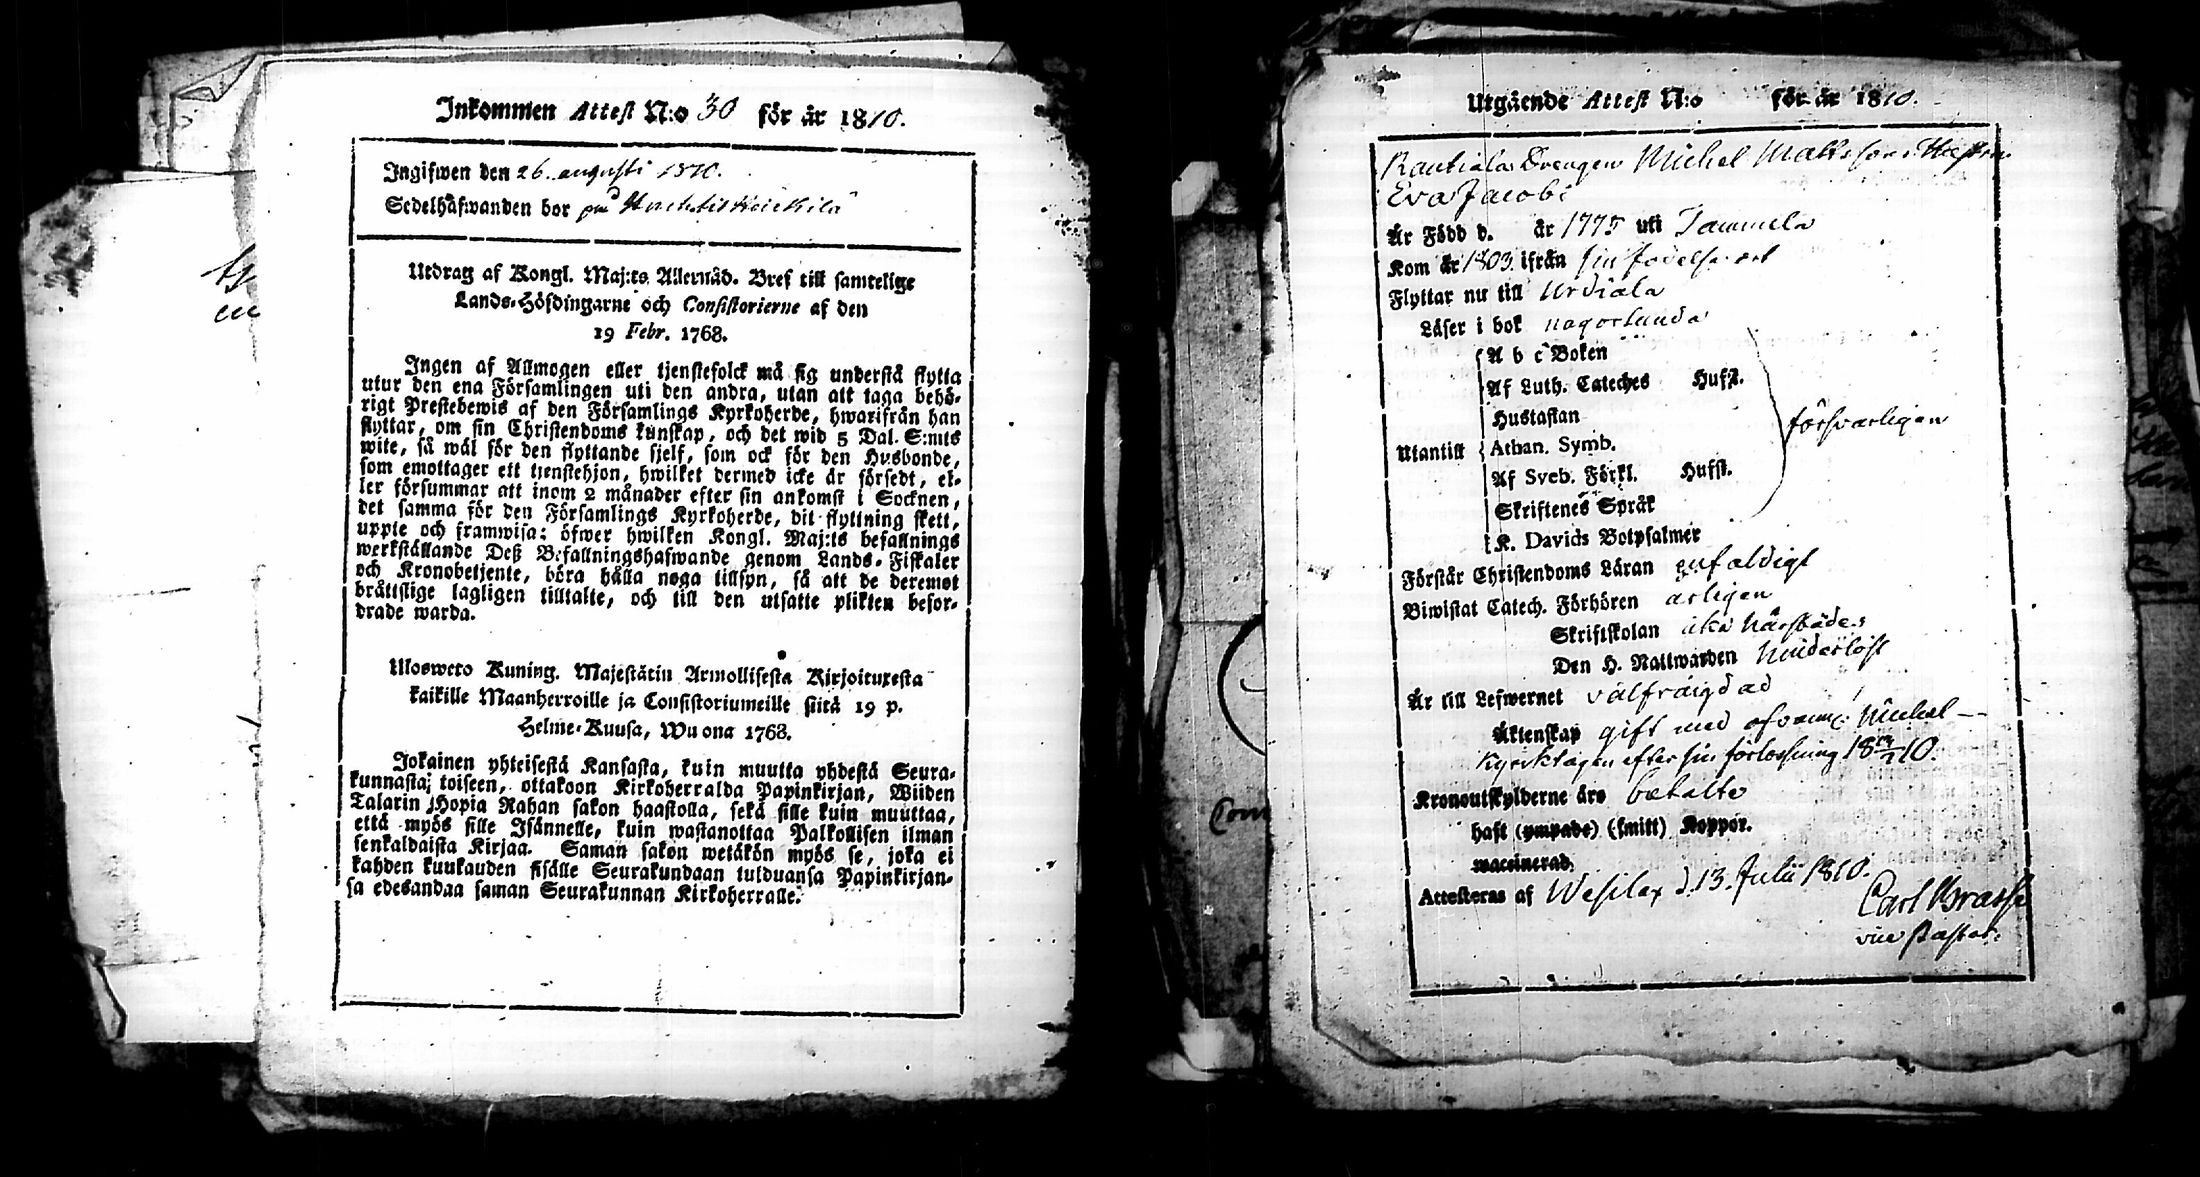 Inkommen Attest N:o 30 för år 1810.
Ingifwen den 26. augusti 1810.
Sedelhäfwanden bor på
Utdrag af Kongl. Maj:ts Allernåd. Bref till samtelige
Lands-Höfdingarne och Consistorierne af den
19 Febr. 1768.
Ingen af Allmogen eller tjenstefolck må sig understå flytta
utur den ena Församlingen uti den andra, utan att taga behö-
rigt Prestebewis af den Församlings Kyrkoherde, hwarifrån han
flyttar, om sin Christendoms kunskap, och det wid 5 Dal. S:mts
wite, så wäl för den flyttande sjelf, som ock för den Husbonde,
som emottager ett tjenstehjon, hwilket dermed icke är försedt, el-
ler försummar att inom 2 månader efter sin ankomst i Socknen,
det samma för den Församlings Kyrkoherde, dit flyttning skett,
uppte och framwisa: öfwer hwilken Kongl. Maj:ts befallnings
werkställande Deß Befallningshafwande genom Lands-Fiskaler
och Kronobetjente, böra hålla noga tillsyn, så att de deremot
bråttslige lagligen tilltalte, och till den utsatte plikten befor-
drade warda.
Ulosweto Kuning. Majestätin Armollisesta Kirjoituxesta
kaikille Maanherroille ja Consistoriumeille siitä 19 p.
Helme-Kuusa, Wuona 1768.
Jokainen yhteisestä Kansasta, kuin muutta yhdestä Seura-
kunnasta toiseen, ottakoon Kirkoherralda Papinkirjan, Wiiden
Talarin Hopia Rahan sakon haastolla, sekä sille kuin muuttaa,
että myös sille Isännelle, kuin wastanottaa Palkollisen ilman
senkaldaista Kirjaa. Saman sakon wetäkön myös se, joka ei
kahden kuukauden sisälle Seurakundaan tulduansa Papinkirjan-
sa edesandaa saman Seurakunnan Kirkoherralle.
Utgående Attest N:o för år 1810.
Rautiala Drengen Michel Mattsons Hustru
Eva Jacobs
Är Född d. år 1775 uti Tammela
Kom år 1803 ifrån sin födelse ort
Flyttar nu till Urdiala
Läser i bok någorlunda
A b c Boken
Af Luth. Cateches Hufst.
Hustaflan
Utantill Athan. Symb. försvarligen
Af Sveb. Förkl. Hufst.
Skriftenes Språk
K. Davids Botpsalmer
Förstår Christendoms Läran enfaldigt
Biwistat Catech. Förhören årligen
Skriftskolan
Den H. Nattwarden hinderlöst
Är till Lefwernet välfräigdad
Äktenskap gift med ofvannä: Michel
Kyrktagen efter sin förlossning 18 10.
Kronoutskylderne äro betalte
haft (ympade) (smitt) Koppor.
waccinerad,
Attesteras af Wesilax d. 13. Julii 1810.
Carl Grasse
vice Pastor.